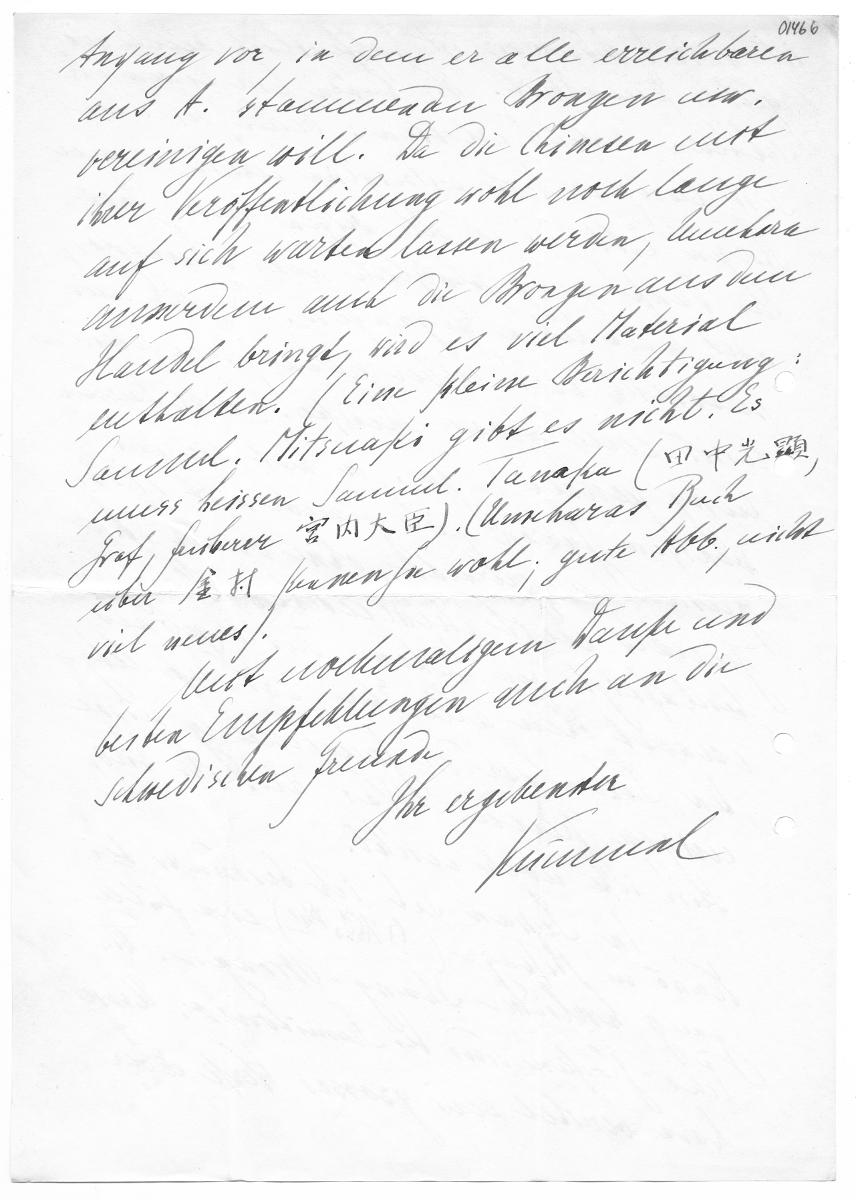 01466
Anyang vor, in dem er alle erreichbaren
aus A. stammenden Bronzen usw.
vereinigen will. Da die Chinesen mit
ihrer Veröffentlichung wohl noch lange
auf sich warten lassen werden, Umehara
ausserdem auch die Bronzen aus dem
Handel bringt, wird es viel Material
enthalten. (Eine kleine Berichtigung:
Samml. Mitsuaki gibt es nicht. Es
muss heissen Samml. Tanaka (田中光顕,
Graf, früherer 宮内大臣). (Umeharas Buch
über 金村 kennen Sie wohl; gute Abb., nicht
viel neues).
Mit nochmaligem Danke und
besten Empfehlungen auch an die
schwedischen Freunde
Ihr ergebenster
Kümmel